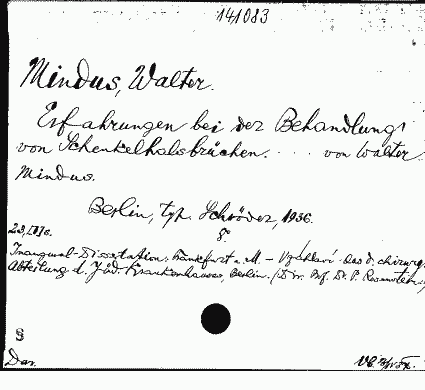 141083
Mindus, Walter.
Erfahrungen bei der Behandlung
von Schenkelhalsbrüchen. ... von Walter
Mindus.
Berlin, typ. Schröder, 1936.
8°
Inaugural-Dissertation. Frankfurt a. M. - Vzchlaví
Abteilung d. Jüd. Krankenhauses, Berlin. (Dir. Prof. Dr. P. Rosenstein.)
§
Dar.